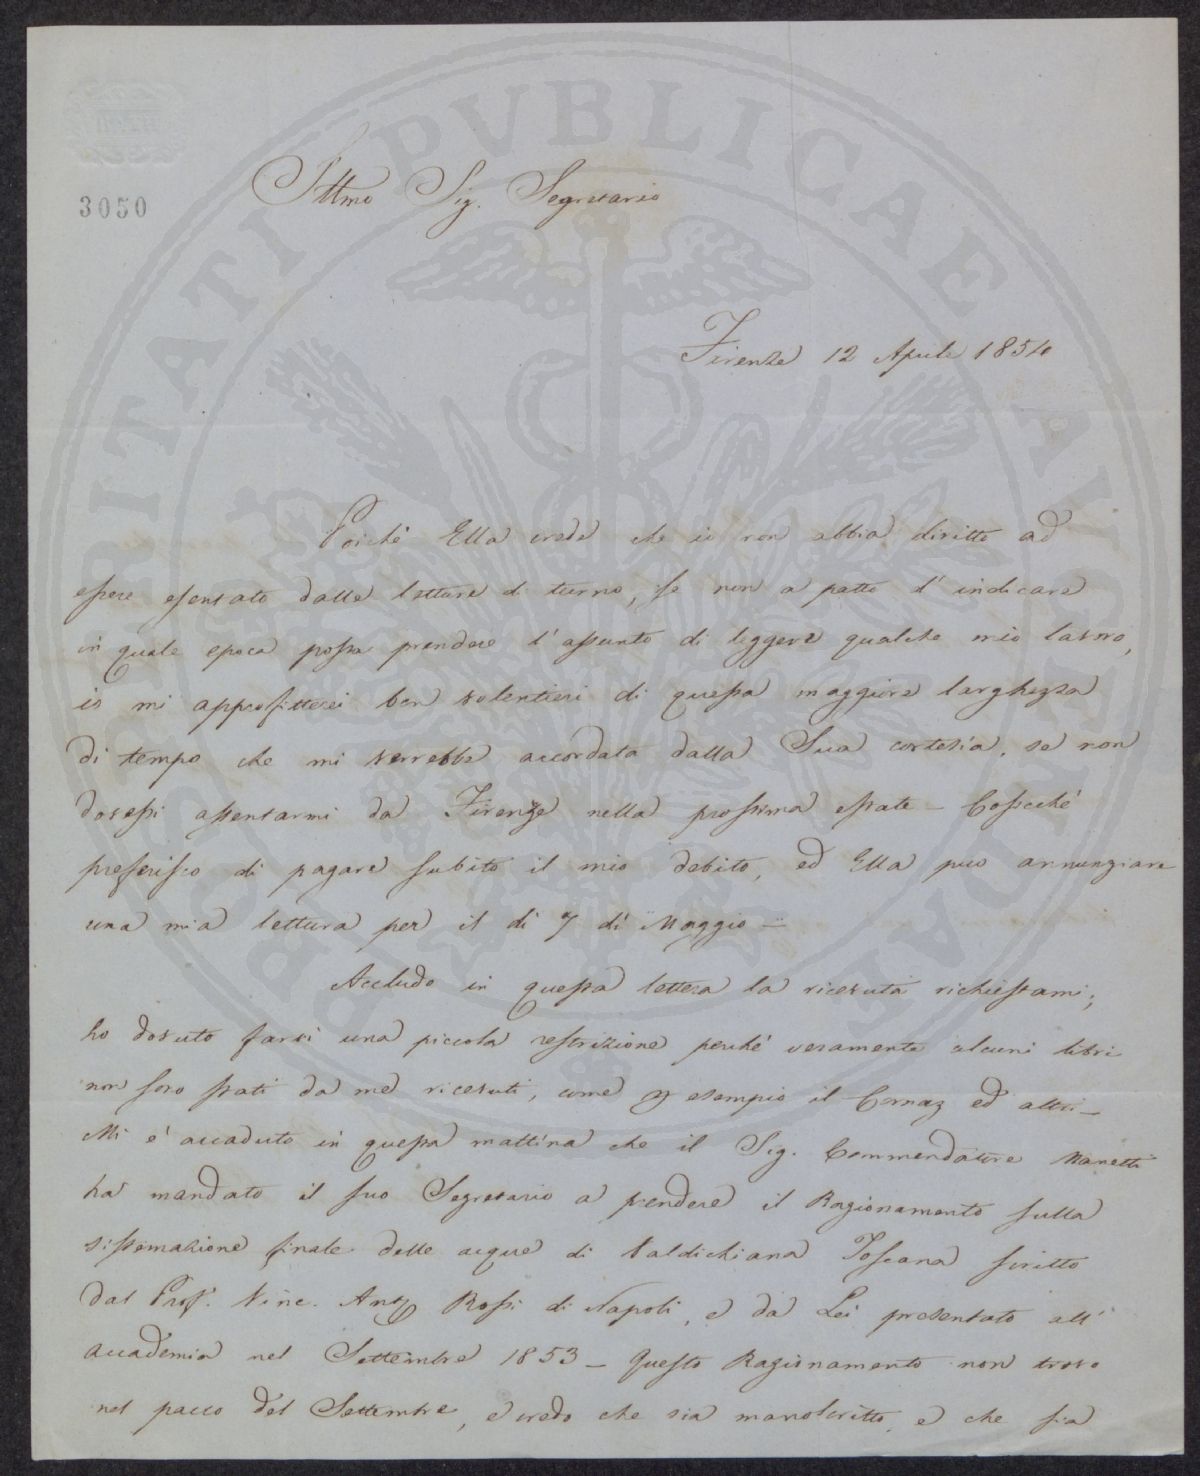 PROSPERITATI PVBLICAE AVGENDAE
3050
Illmo Sig. Segretario
Firenze 12 Aprile 1854
Poiché Ella crede che io non abbia diritto ad
essere esentato dalle letture di turno, se non a patto d'indicare
in quale epoca possa prendere l'assunto di leggere qualche mio lavoro,
io mi approfitterei ben volentieri di questa maggiore larghezza
di tempo che mi verrebbe accordata dalla Sua cortesia, se non
dovessi assentarmi da Firenze nella prossima estate – Cosicché
preferisco di pagare subito il mio debito, ed Ella può annunziare
una mia lettura per il dì 7 di Maggio –
Accludo in questa lettera la ricevuta richiestami;
ho dovuto farvi una piccola restrizione perché veramente alcuni libri
non sono stati da me ricevuti, come p esempio il Cornaz ed altri –
Mi è accaduto in questa mattina che il Sig. Commendatore Manetti
ha mandato il suo Segretario a prendere il Ragionamento sulla
sistemazione finale delle acque di Valdichiana Toscana scritto
dal Prof. Vinc. Anto Rossi di Napoli, e da Lei presentato all'
Accademia nel Settembre 1853 – Questo Ragionamento non trovo
nel pacco del Settembre, e credo che sia manoscritto, e che sia